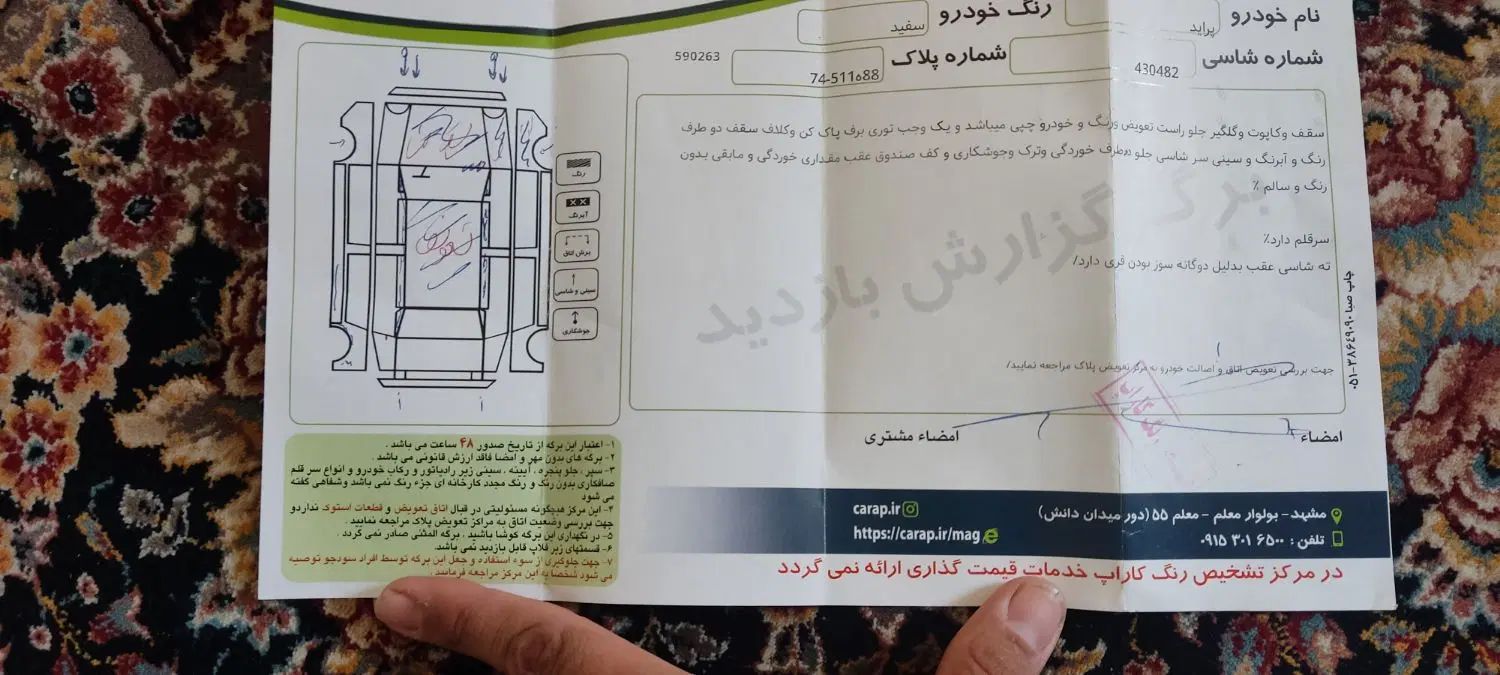 نام خودرو پراید رنگ خودرو سفید
شماره شاسی 430482 شماره پلاک 74-511ه88 590263
سقف وکاپوت وگلگیر جلو راست تعویض ورنگ و خودرو چپی میباشد و یک وجب توری برف پاک کن وکلاف سقف دو طرف
رنگ و آبرنگ و سینی سر شاسی جلو دوطرف خوردگی وترک وجوشکاری و کف صندوق عقب مقداری خوردگی و مابقی بدون
رنگ و سالم ٪
سرقلم دارد٪
ته شاسی عقب بدلیل دوگانه سوز بودن قری دارد/
برگ گزارش بازدید
جهت بررسی تعویض اتاق و اصالت خودرو به مرکز تعویض پلاک مراجعه نمایید/
امضاء
امضاء مشتری
چاپ صبا ۳۸۶۴۹۰۹۰-۰۵۱
رنگ
آبرنگ
برش اتاق
سینی و شاسی
جوشکاری
تعویض
۱- اعتبار این برگه از تاریخ صدور ۴۸ ساعت می باشد .
۲- برگه های بدون مهر و امضا فاقد ارزش قانونی می باشد .
۳- سپر ، جلو پنجره ، آیینه ، سینی زیر رادیاتور و رکاب خودرو و انواع سر قلم
صافکاری بدون رنگ و رنگ مجدد کارخانه ای جزء رنگ نمی باشد وشفاهی گفته
می شود
۴- این مرکز هیچگونه مسئولیتی در قبال اتاق تعویض و قطعات استوک نداردو
جهت بررسی وضعیت اتاق به مراکز تعویض پلاک مراجعه نمایید .
۵- در نگهداری این برگه کوشا باشید . برگه المثنی صادر نمی گردد .
۶- قسمتهای زیر قلاپ قابل بازدید نمی باشد.
۷- جهت جلوگیری از سوء استفاده و جعل این برگه توسط افراد سودجو توصیه
می شود شخصا به این مرکز مراجعه فرمایید .
مشهد - بولوار معلم - معلم ۵۵ (دور میدان دانش)
تلفن : ۶۵۰۰ ۳۰۱ ۰۹۱۵
carap.ir
https://carap.ir/mag
در مرکز تشخیص رنگ کاراپ خدمات قیمت گذاری ارائه نمی گردد